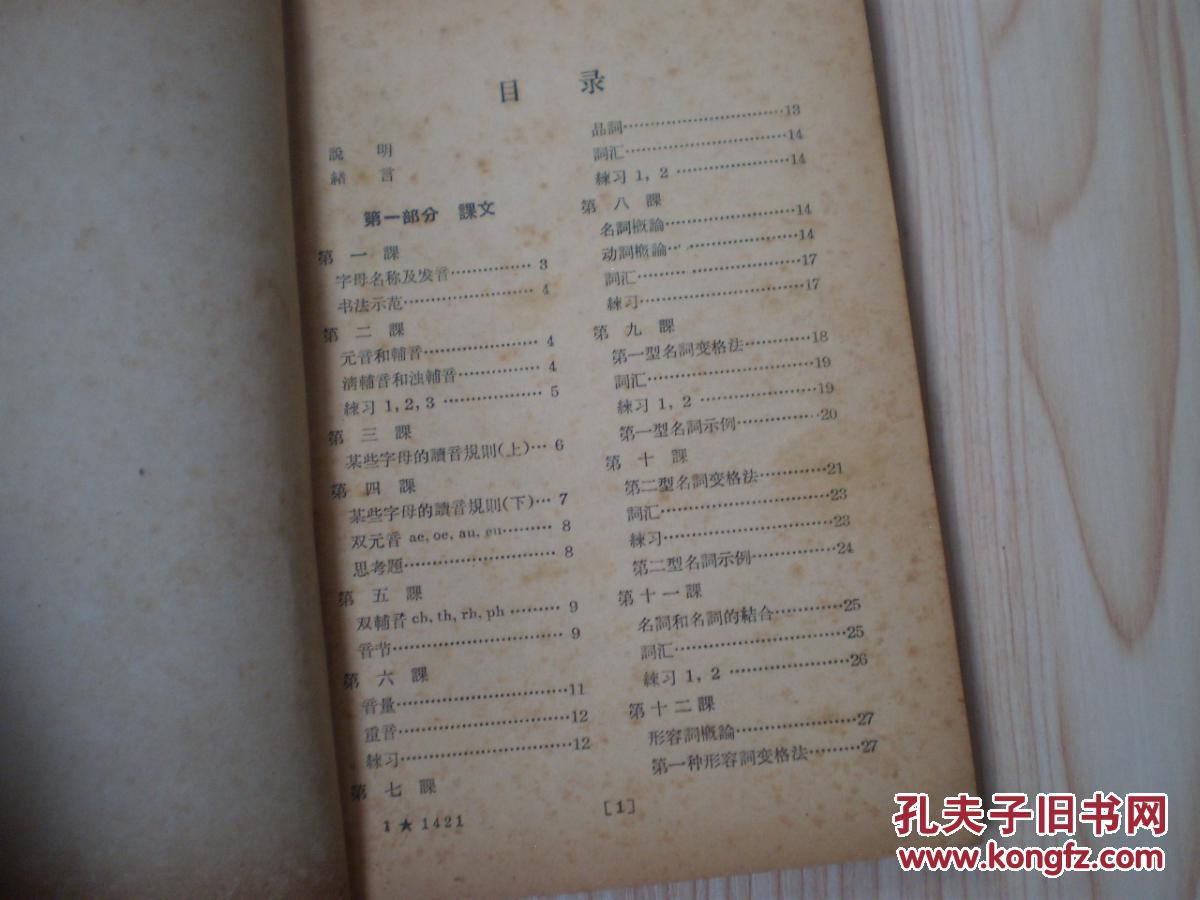 目 录
說 明
緒 言
第一部分 課文
第 一 課
字母名称及发音……………… 3
书法示范…………………… 4
第 二 課
元音和輔音………………… 4
清輔音和浊輔音…………… 4
練习 1, 2, 3 ……………… 5
第 三 課
某些字母的讀音規則(上)… 6
第 四 課
某些字母的讀音規則(下)… 7
双元音 ae, oe, au, eu……… 8
思考題……………………… 8
第 五 課
双輔音 ch, th, rh, ph ……… 9
音节………………………… 9
第 六 課
音量…………………………11
重音…………………………12
練习…………………………12
第 七 課
品詞…………………………13
詞汇…………………………14
練习 1, 2 …………………14
第 八 課
名詞概論……………………14
动詞概論……………………14
詞汇…………………………17
練习…………………………17
第 九 課
第一型名詞变格法…………18
詞汇…………………………19
練习 1, 2 …………………19
第一型名詞示例……………20
第 十 課
第二型名詞变格法…………21
詞汇…………………………23
練习…………………………23
第二型名詞示例……………24
第 十 一 課
名詞和名詞的結合…………25
詞汇…………………………25
練习 1, 2 …………………26
第 十 二 課
形容詞概論…………………27
第一种形容詞变格法………27
1 ★ 1421
[1]
孔夫子旧书网
www.kongfz.com